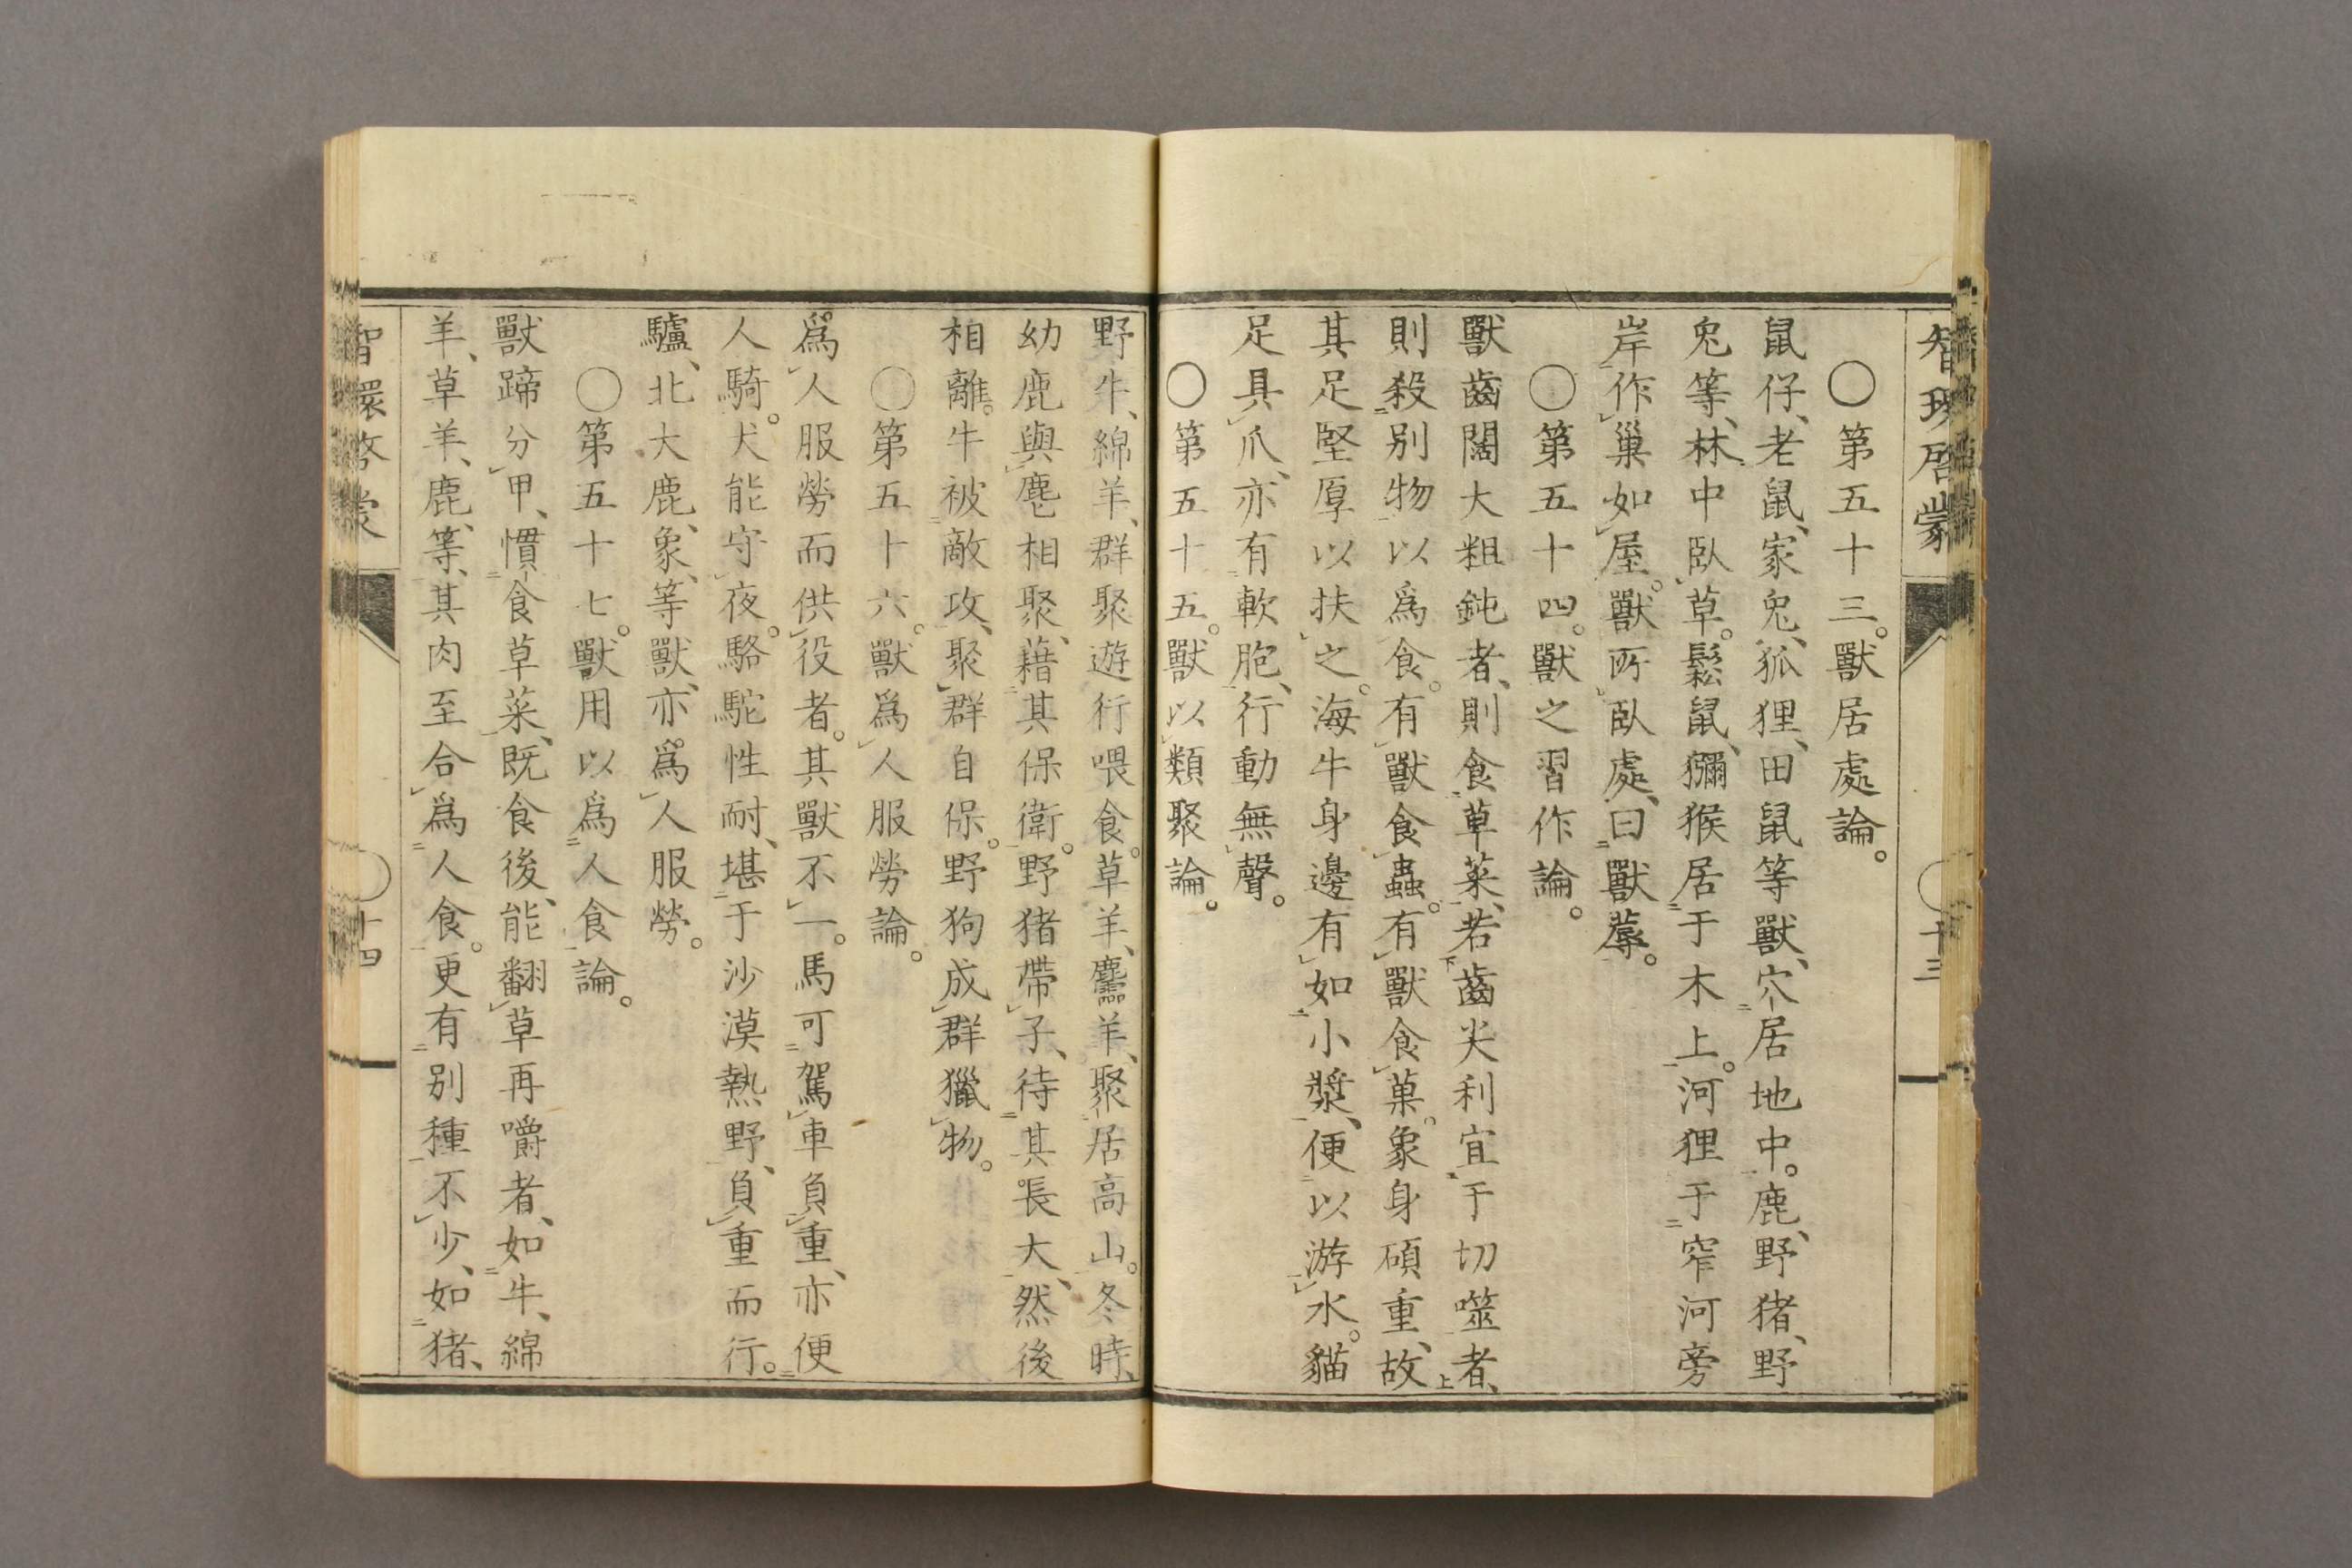 ○第五十三。獸居處論。
鼠仔、老鼠、家兔、狐狸、田鼠等獸、穴居地中。鹿、野猪、野
兔等、林中臥草。鬆鼠、獼猴居于木上。河狸于窄河旁
岸作巢如屋。獸所臥處、曰獸蓐。
○第五十四。獸之習作論。
獸齒闊大粗鈍者、則食草菜、若齒尖利宜于切噬者、
則殺別物以爲食。有獸食蟲。有獸食菓。象身碩重、故
其足堅厚以扶之。海牛身邊有如小槳、便以游水。貓
足具爪、亦有軟胞、行動無聲。
○第五十五。獸以類聚論。
野牛、綿羊、群聚遊行喂食。草羊、麢羊、聚居高山。冬時、
幼鹿與麀相聚、藉其保衛。野猪帶子、待其長大、然後
相離。牛被敵攻、聚群自保。野狗成群獵物。
○第五十六。獸爲人服勞論。
爲人服勞而供役者。其獸不一。馬可駕車負重、亦便
人騎。犬能守夜。駱駝性耐、堪于沙漠熱野、負重而行。
驢、北大鹿、象、等獸、亦爲人服勞。
○第五十七。獸用以爲人食論。
獸蹄分甲、慣食草菜、既食後、能翻草再嚼者、如牛、綿
羊、草羊、鹿、等、其肉至合爲人食。更有別種不少、如猪、
智環啓蒙
十三
智環啓蒙
十四